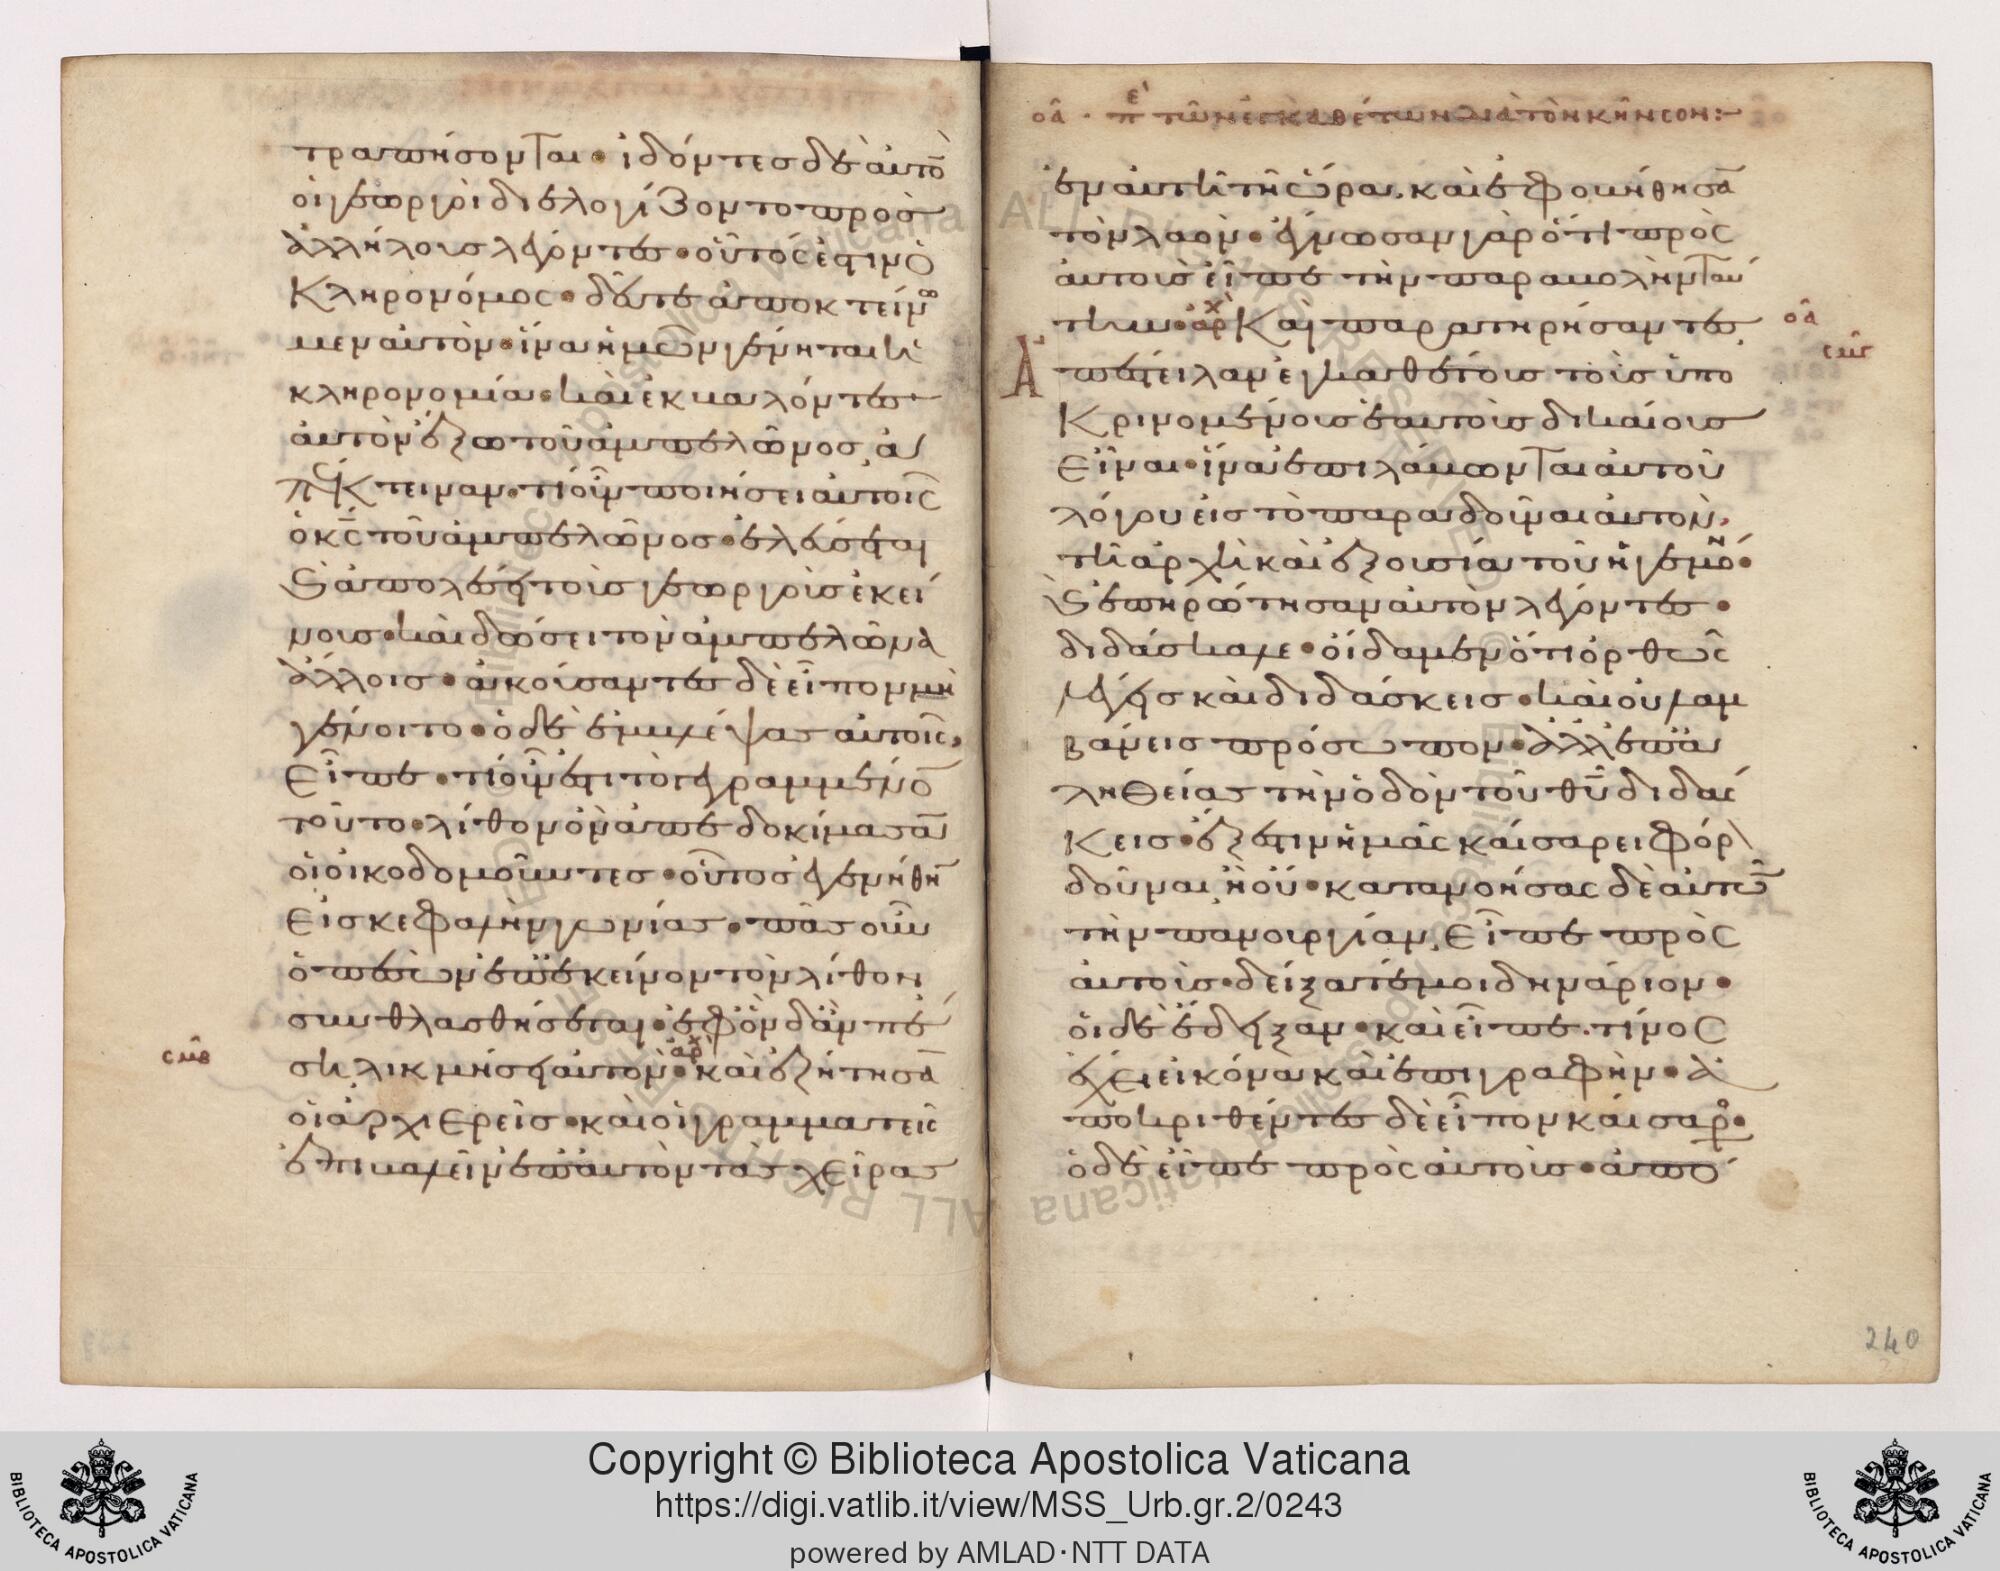 τραπήσονται · ἰδόντες δὲ αὐτὸ
οἱ γεωργοὶ διελογίζοντο πρὸς
ἀλλήλους λέγοντες · οὗτός ἐστιν ὁ
κληρονόμος · δεῦτε ἀποκτείνω
μεν αὐτὸν · ἵνα ἡμῶν γένηται ἡ
κληρονομία · καὶ ἐκβαλόντες
αὐτὸν ἔξω τοῦ ἀμπελῶνος, ἀ
πέκτειναν · τί οὖν ποιήσει αὐτοῖς
ὁ κς τοῦ ἀμπελῶνος · ἐλεύσεται
καὶ ἀπολέσει τοὺς γεωργοὺς ἐκεί
νους · καὶ δώσει τὸν ἀμπελῶνα
ἄλλοις · ἀκούσαντες δὲ εἶπον μὴ
γένοιτο · ὁ δὲ ἐμβλέψας αὐτοῖς,
εἶπε · τί οὖν ἐστι τὸ γεγραμμένο
τοῦτο · λίθον ὃν ἀπεδοκίμασαν
οἱ οἰκοδομοῦντες · οὗτος ἐγενήθη
εἰς κεφαλὴν γωνίας · πᾶς οὖν
ὁ πεσὼν ἐπ' ἐκεῖνον τὸν λίθον
συνθλασθήσεται · ἐφ' ὃν δ' ἂν πέ
σῃ λικμήσει αὐτόν · αρχ καὶ ἐζήτησα
σμβ
οἱ ἀρχιερεῖς · καὶ οἱ γραμματεῖς
ἐπιβαλεῖν ἐπ' αὐτὸν τὰς χεῖρας
οα · πε τῶν ἐγκαθέτων διὰ τὸν κῆνσον :
ἐν αὐτῇ τῇ ὥρα, καὶ ἐφοβήθησα
τὸν λαὸν · ἔγνωσαν γὰρ ὅτι πρὸς
αὐτοὺς εἶπε τὴν παραβολὴν ταύ
την · αρχ Καὶ παρατηρήσαντες
οα
σμγ
ἀπέστειλαν ἐγκαθέτους τοὺς ὑπο
κρινομένους ἑαυτοὺς δικαίους
εἶναι · ἵνα ἐπιλάβωνται αὐτοῦ
λόγου εἰς τὸ παραδοῦναι αὐτὸν,
τῇ ἀρχῇ καὶ ἐξουσία τοῦ ἡγεμόν ·
καὶ ἐπηρώτησαν αὐτὸν λέγοντες ·
διδάσκαλε · οἴδαμεν ὅτι ὀρθῶς
λέγεις καὶ διδάσκεις · καὶ οὐ λαμ
βάνεις πρόσωπον · ἀλλ' ἐπ' ἀ
ληθείας τὴν ὁδὸν τοῦ θυ διδάσ
κεις · ἔξεστιν ἡμᾶς καίσαρει φόρ
δοῦναι, ἢ οὔ · κατανοήσας δὲ αὐτῶ
τὴν πανουργίαν, εἶπε πρὸς
αὐτοὺς · δείξατέ μοι δηνάριον ·
οἱ δὲ ἔδειξαν · καὶ εἶπε · τίνος
ἔχει εἰκόνα καὶ ἐπιγραφὴν · ἀ
ποκριθέντες δὲ εἶπον καίσαρο ·
ὁ δὲ εἶπε πρὸς αὐτοὺς · ἀπό
240
Copyright © Biblioteca Apostolica Vaticana
https://digi.vatlib.it/view/MSS_Urb.gr.2/0243
powered by AMLAD·NTT DATA
BIBLIOTECA APOSTOLICA VATICANA
BIBLIOTECA APOSTOLICA VATICANA